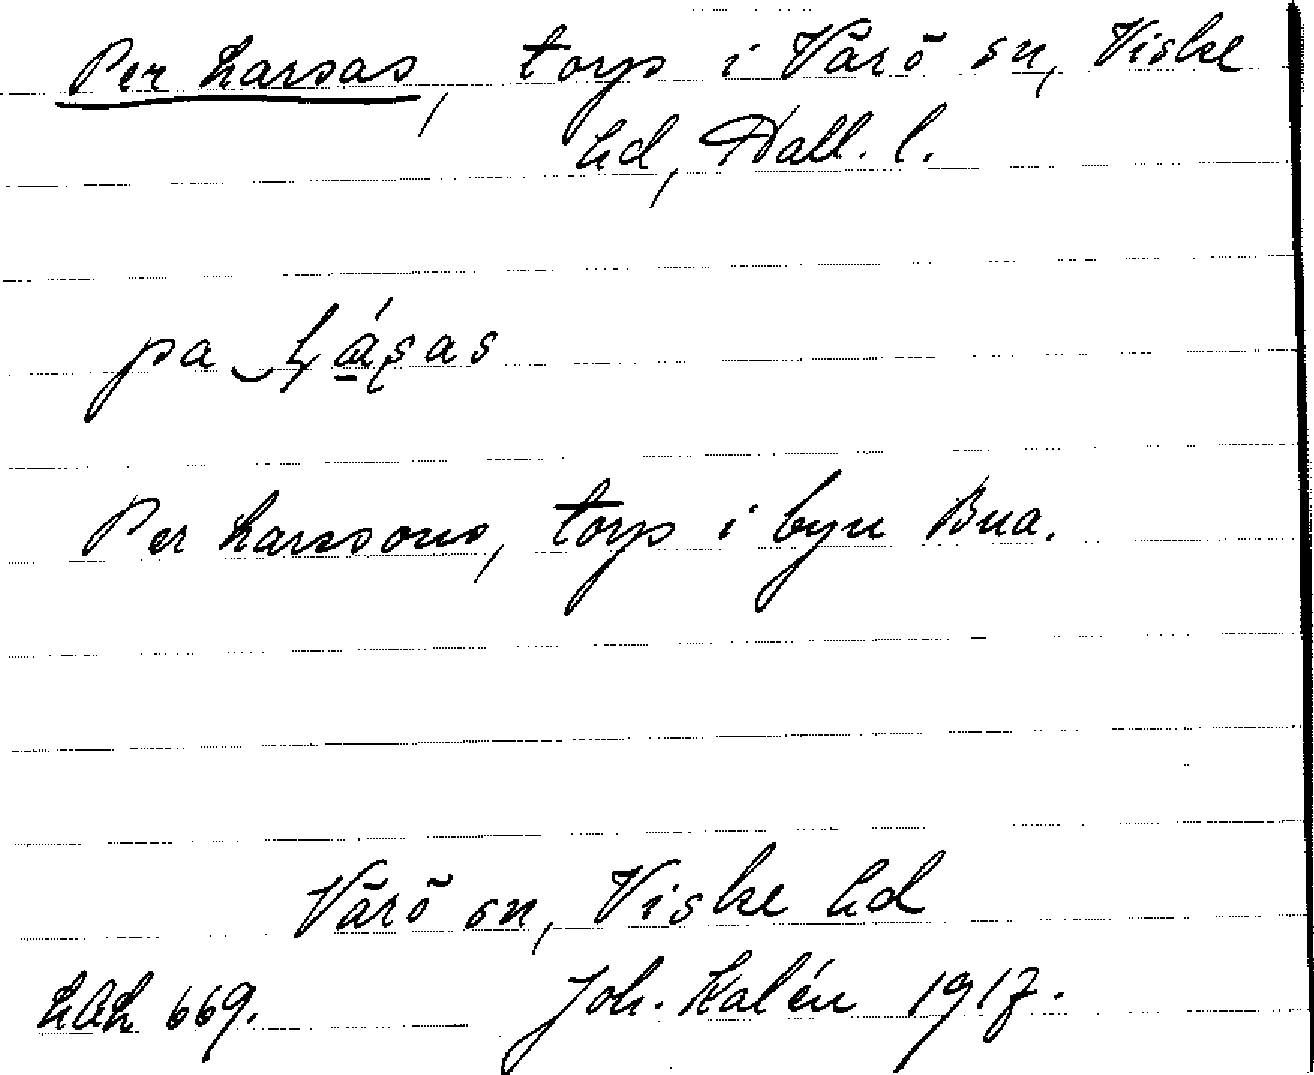 Per Larsas, torp i Värö sn, Viske
hd, Hall. l.
Per Larssons, torp i byn Bua.
Värö sn, Viske hd
LAL 669. Joh. Kalén 1917.